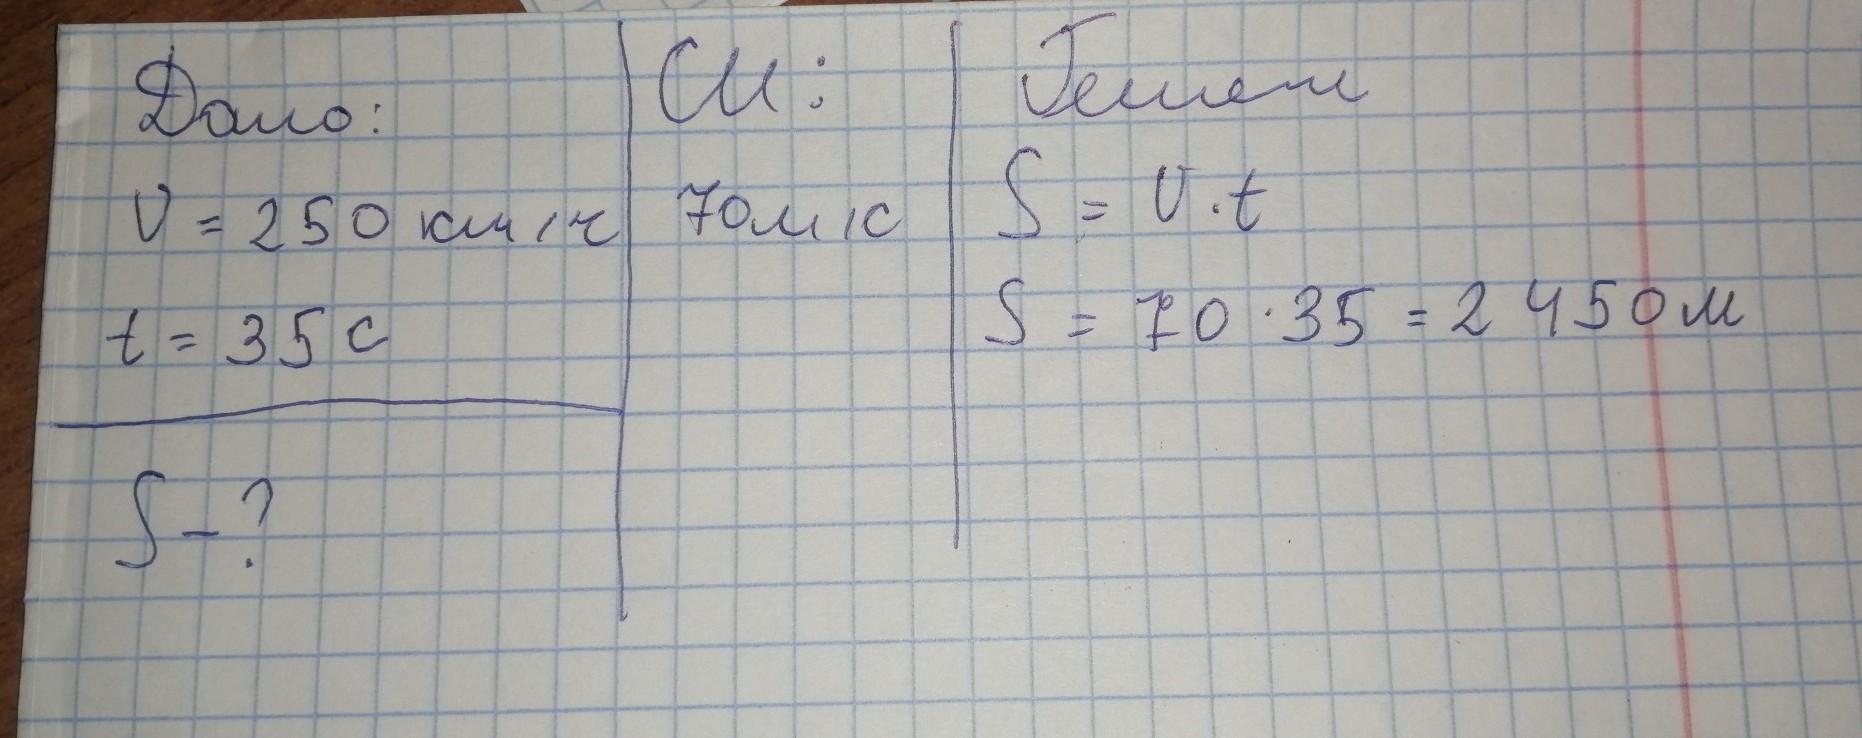 Дано:
V = 250 км/ч
t = 35 с
S - ?
СИ:
70м/с
Решен
S = V · t
S = 70 · 35 = 2 450 м